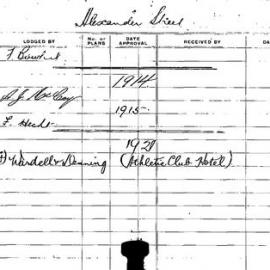 Alexander Street
LODGED BY No. of PLANS DATE APPROVAL RECEIVED BY DA
1914
1915
F. Hecht
1921
Wardell & Denning (Athletic Club Hotel)